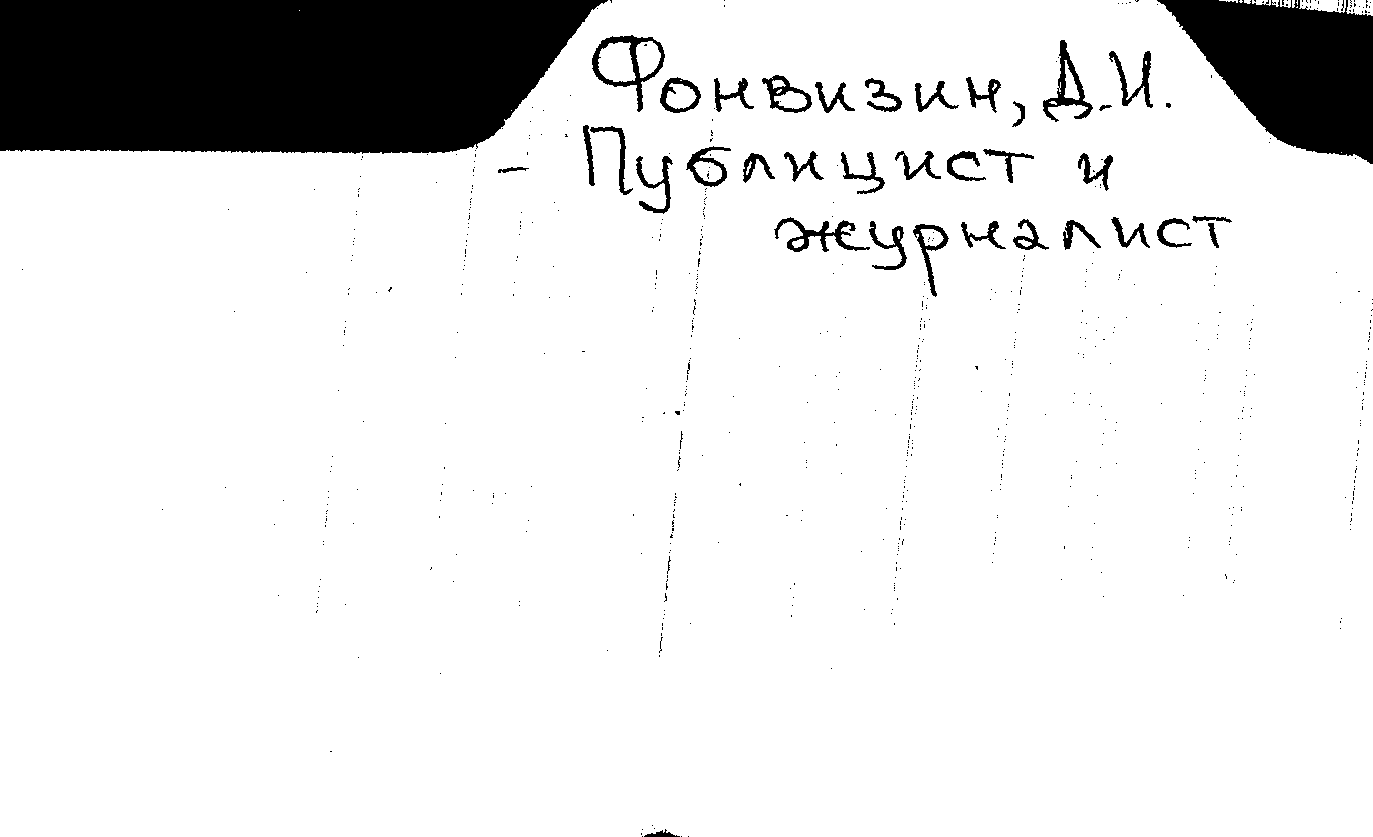 Фонвизин, Д.И.
- Публицист и
журналист